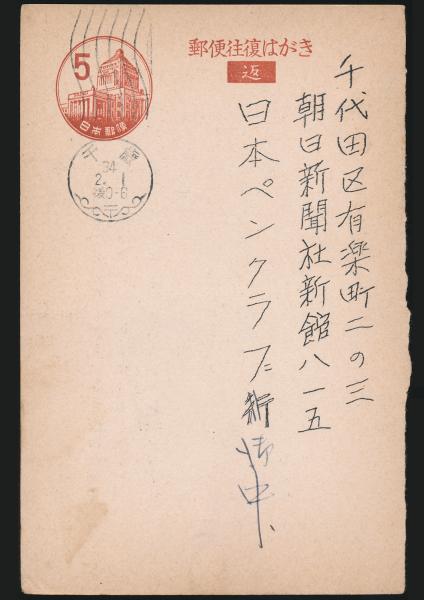 郵便往復はがき
返
5
日本郵便
千歳
34
2. 1
千代田区有楽町二の三
朝日新聞社新館八一五
日本ペンクラブ
御中